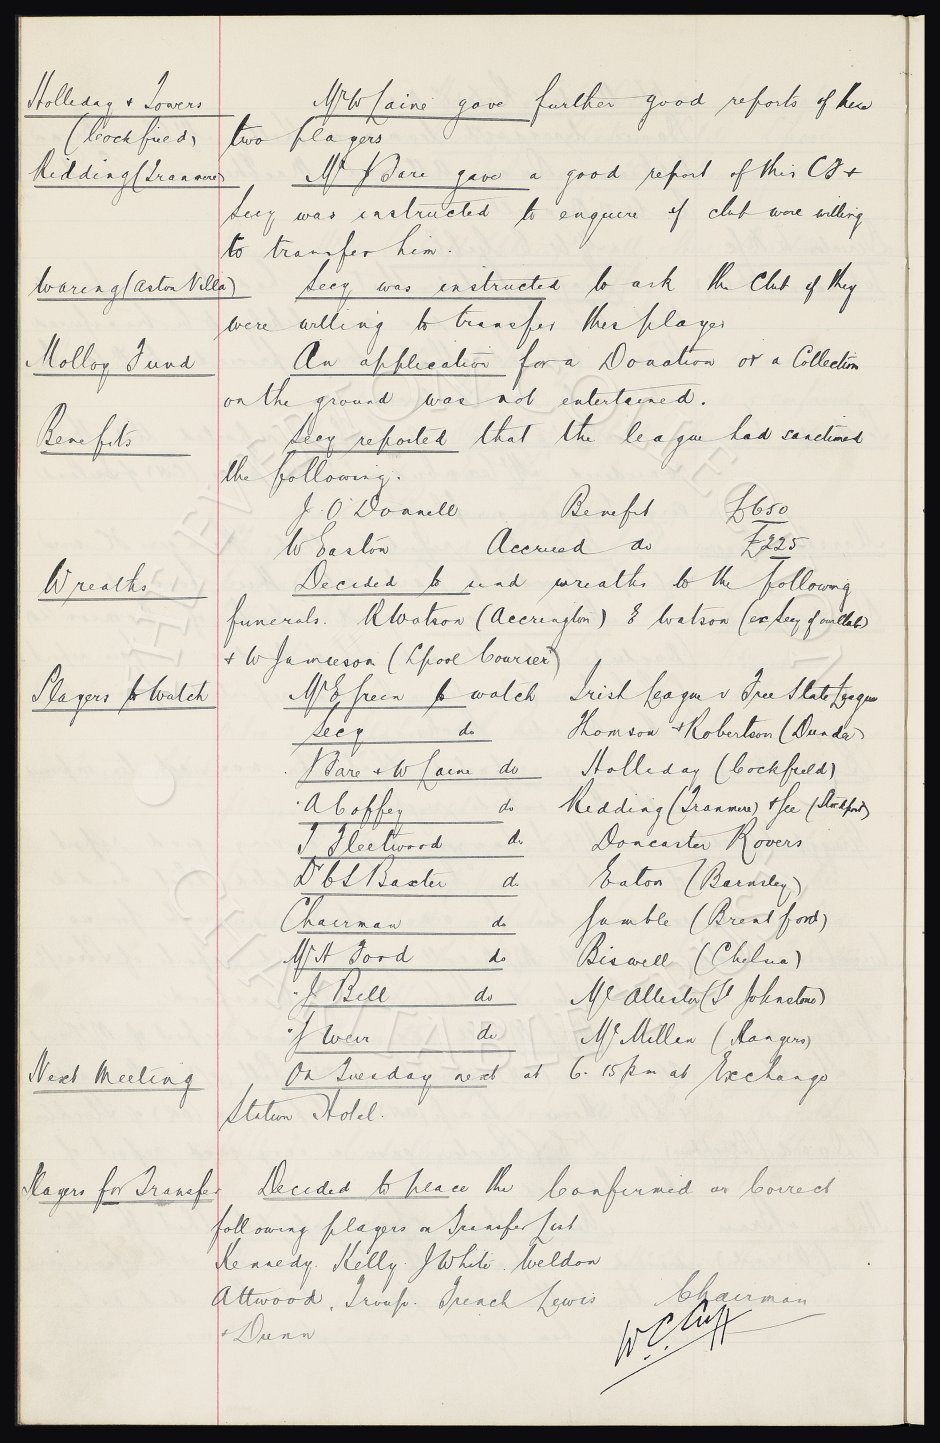 Holliday & Towers Mr W Caine gave further good reports of these
(Cockfield) two players
Ridding (Tranmere) Mr Bare gave a good report of this CF &
Secy was instructed to enquire if club were willing
to transfer him.
Waring (Aston Villa) Secy was instructed to ask the Club if they
were willing to transfer this player
Molloy Fund An application for a Donation or a Collection
on the ground was not entertained.
Benefits Secy reported that the league had sanctioned
the following.
J O'Donnell Benefit £650
W Easton Accrued do £225
Wreaths Decided to send wreaths to the following
funerals. R Watson (Accrington) E Watson (ex Secy of our Club)
& W Jamieson (Lpool Courier)
Players to Watch Mr E Green to watch Irish League v Free State League
Secy do Thomson & Robertson (Dundee)
Bare & W Caine do Holliday (Cockfield)
" A Coffey do Ridding (Tranmere) & Lee (Stockport)
T Fleetwood do Doncaster Rovers
Dr C S Baxter do Eaton (Barnsley)
Chairman do Gumble (Brentford)
Mr A Ford do Biswell (Chelsea)
" J Bell do Mc Allister (St Johnstone)
" J Weir do Mc Millan (Rangers)
Next Meeting On Tuesday next at 6.15pm at Exchange
Station Hotel.
Players for Transfer Decided to place the Confirmed as Correct
following players on Transfer List
Kennedy. Kelly. J White. Weldon
Attwood, Troup. French Lewis Chairman
& Dunn W. C. Cuff
THE EVERTON COLLECTION
CHARITABLE TRUST